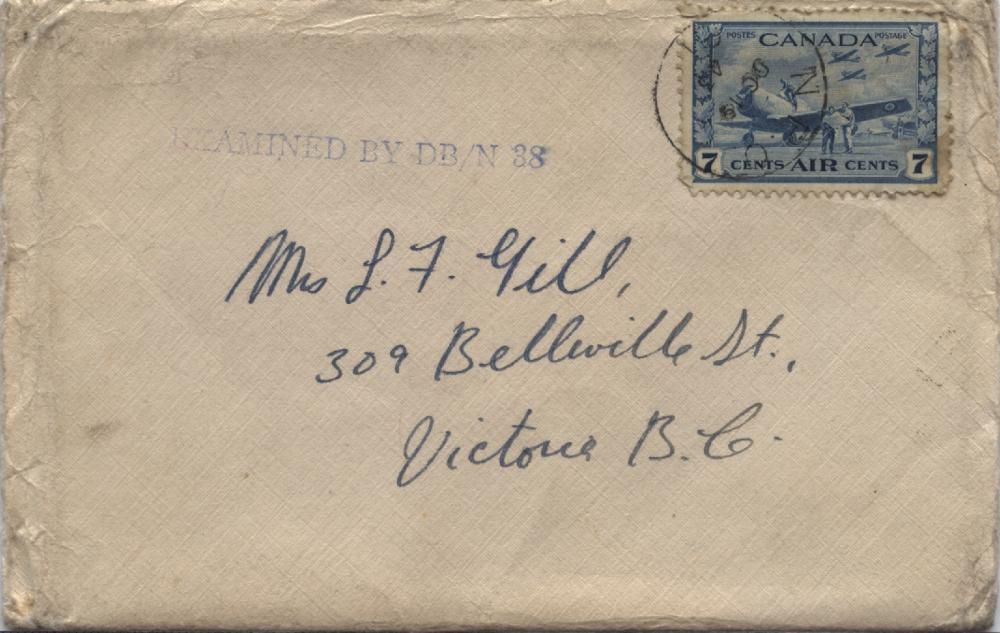 POSTES CANADA POSTAGE
7 CENTS AIR CENTS 7
EXAMINED BY DB/N 38
Mrs L. F. Gill,
309 Belleville St.,
Victoria B.C.